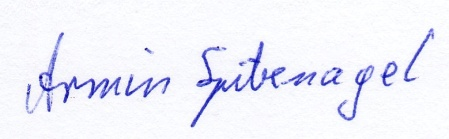 Armin Spitznagel